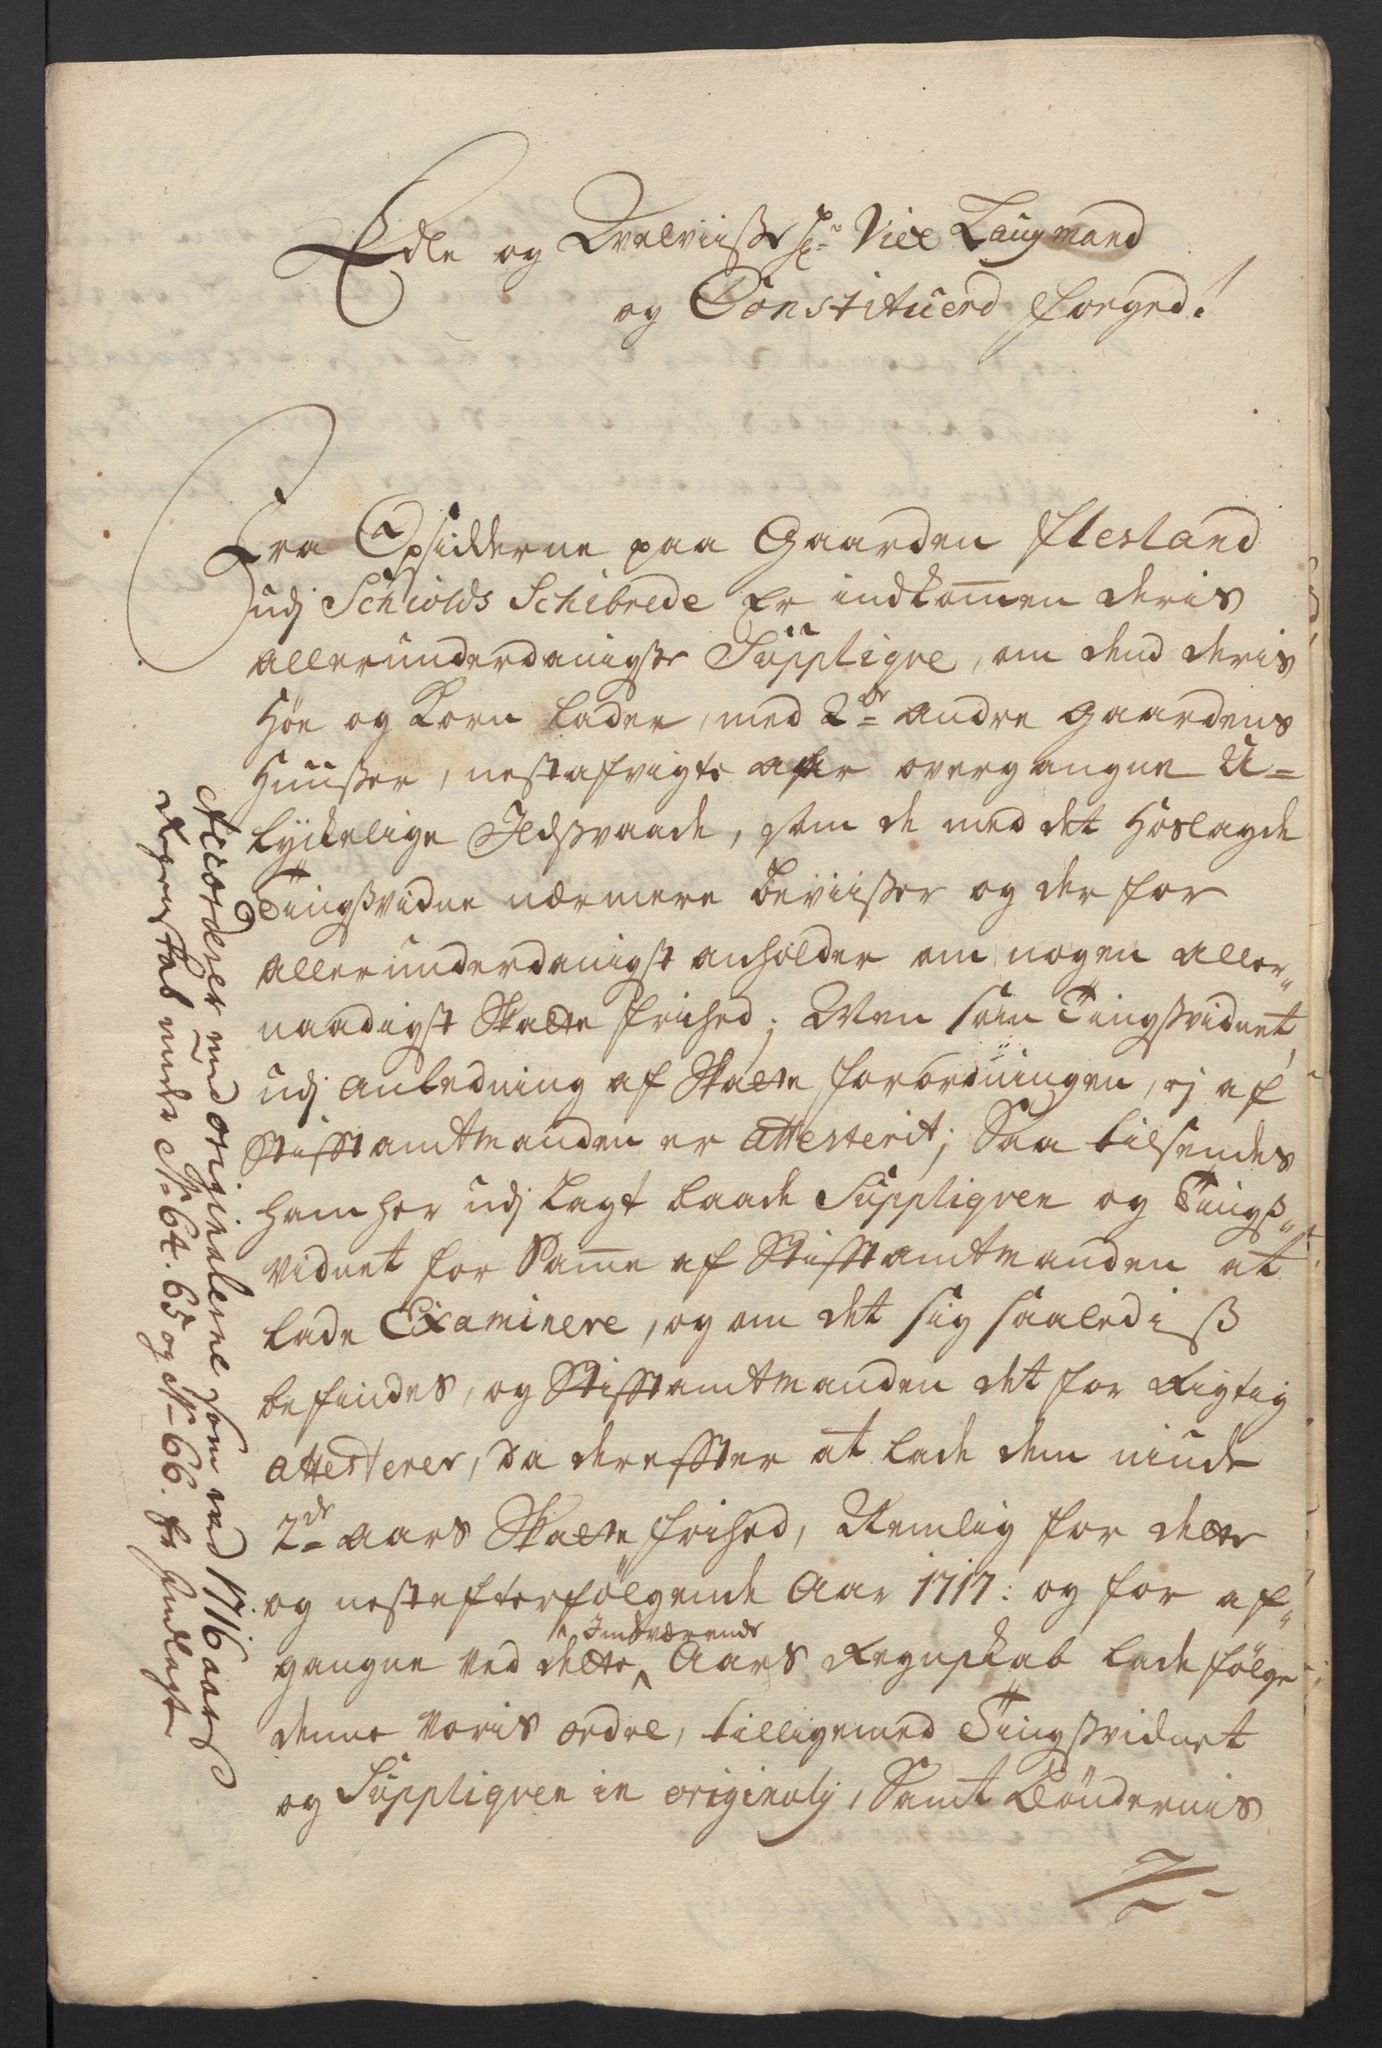 Edle og Velviisse Hr Vice Laugmand
og Constituerd foeged!
Fra Opsidderne paa Gaarden Flesland
udj Schiolds Schibrede Er indkom̅en deris
allerunderdanigste Suppliqve, om dend deris
Høe og Korn lader, med 2de andre Gaardens
Huusser, nestafvigte aar overgangne U=
lyckelige Ildssvaade, som de med det hoslagde
Tingssvidne nærmere beviisser og der for
allerunderdanigst anholder om nogen aller,,
naadigst Skatte frihed; Men som Tingssvidnet
udj anledning af Skatte forordningen, ej af
Stifftamtmanden er attesterit; Saa tilsendes
ham her udj lagt baade Suppliqven og Tingss,,
vidnet for Sam̅e af Stifftamtmanden at
lade Examinere, og om det sig saalediss
befindes, og Stifftamtmanden det for Rigtig
attesterer, da derefftter at lade dem niude
2de aars Skatte frihed, Nemlig for dette
og nestefterfølgende Aar 1717: og for af,,
gangne ved dette Indværende Aars Regnskab lade følge
denne voris ordre, tilligemed Tingssvidnet
og Suppliqven in originaly, Samt Bøndernis
Accorderer med originalerne som ved 1716 aars
Regenskab under No 64. 65 og No 66. er henlagt